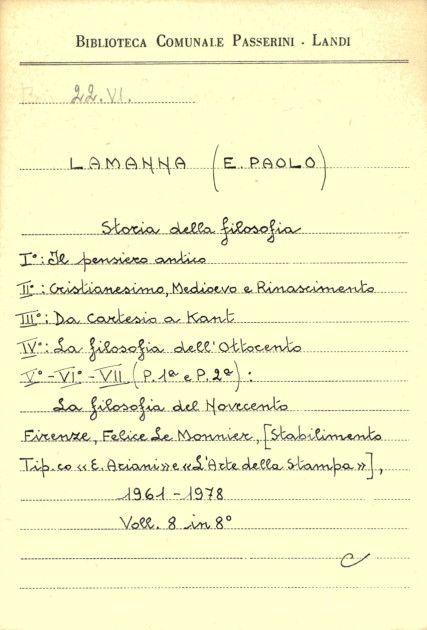 BIBLIOTECA COMUNALE PASSERINI - LANDI
22.VI.
LAMANNA (E. PAOLO)
Storia della filosofia
I°: Il pensiero antico
II°: Cristianesimo, Medioevo e Rinascimento
III°: Da Cartesio a Kant
IV°: La filosofia dell'Ottocento
V° - VI° - VII (P. 1ª e P. 2ª) :
La filosofia del Novecento
Firenze, Felice Le Monnier, [Stabilimento
Tip.co «E. Ariani» e «L'Arte della Stampa»],
1961 - 1978
Voll. 8 in 8°
C